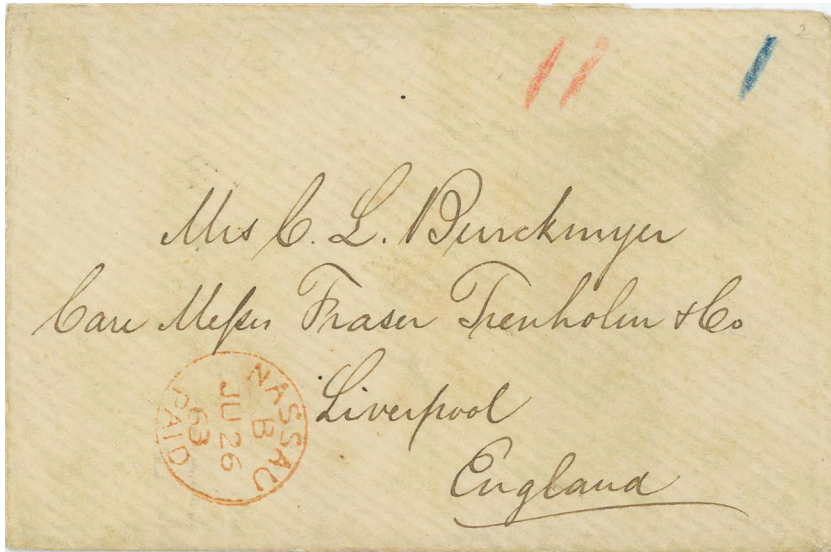 2
11 1
Mrs C. L. Burckmyer
Care Messrs Fraser Trenholm & Co
Liverpool
England
NASSAU
B
JU 26
63
PAID